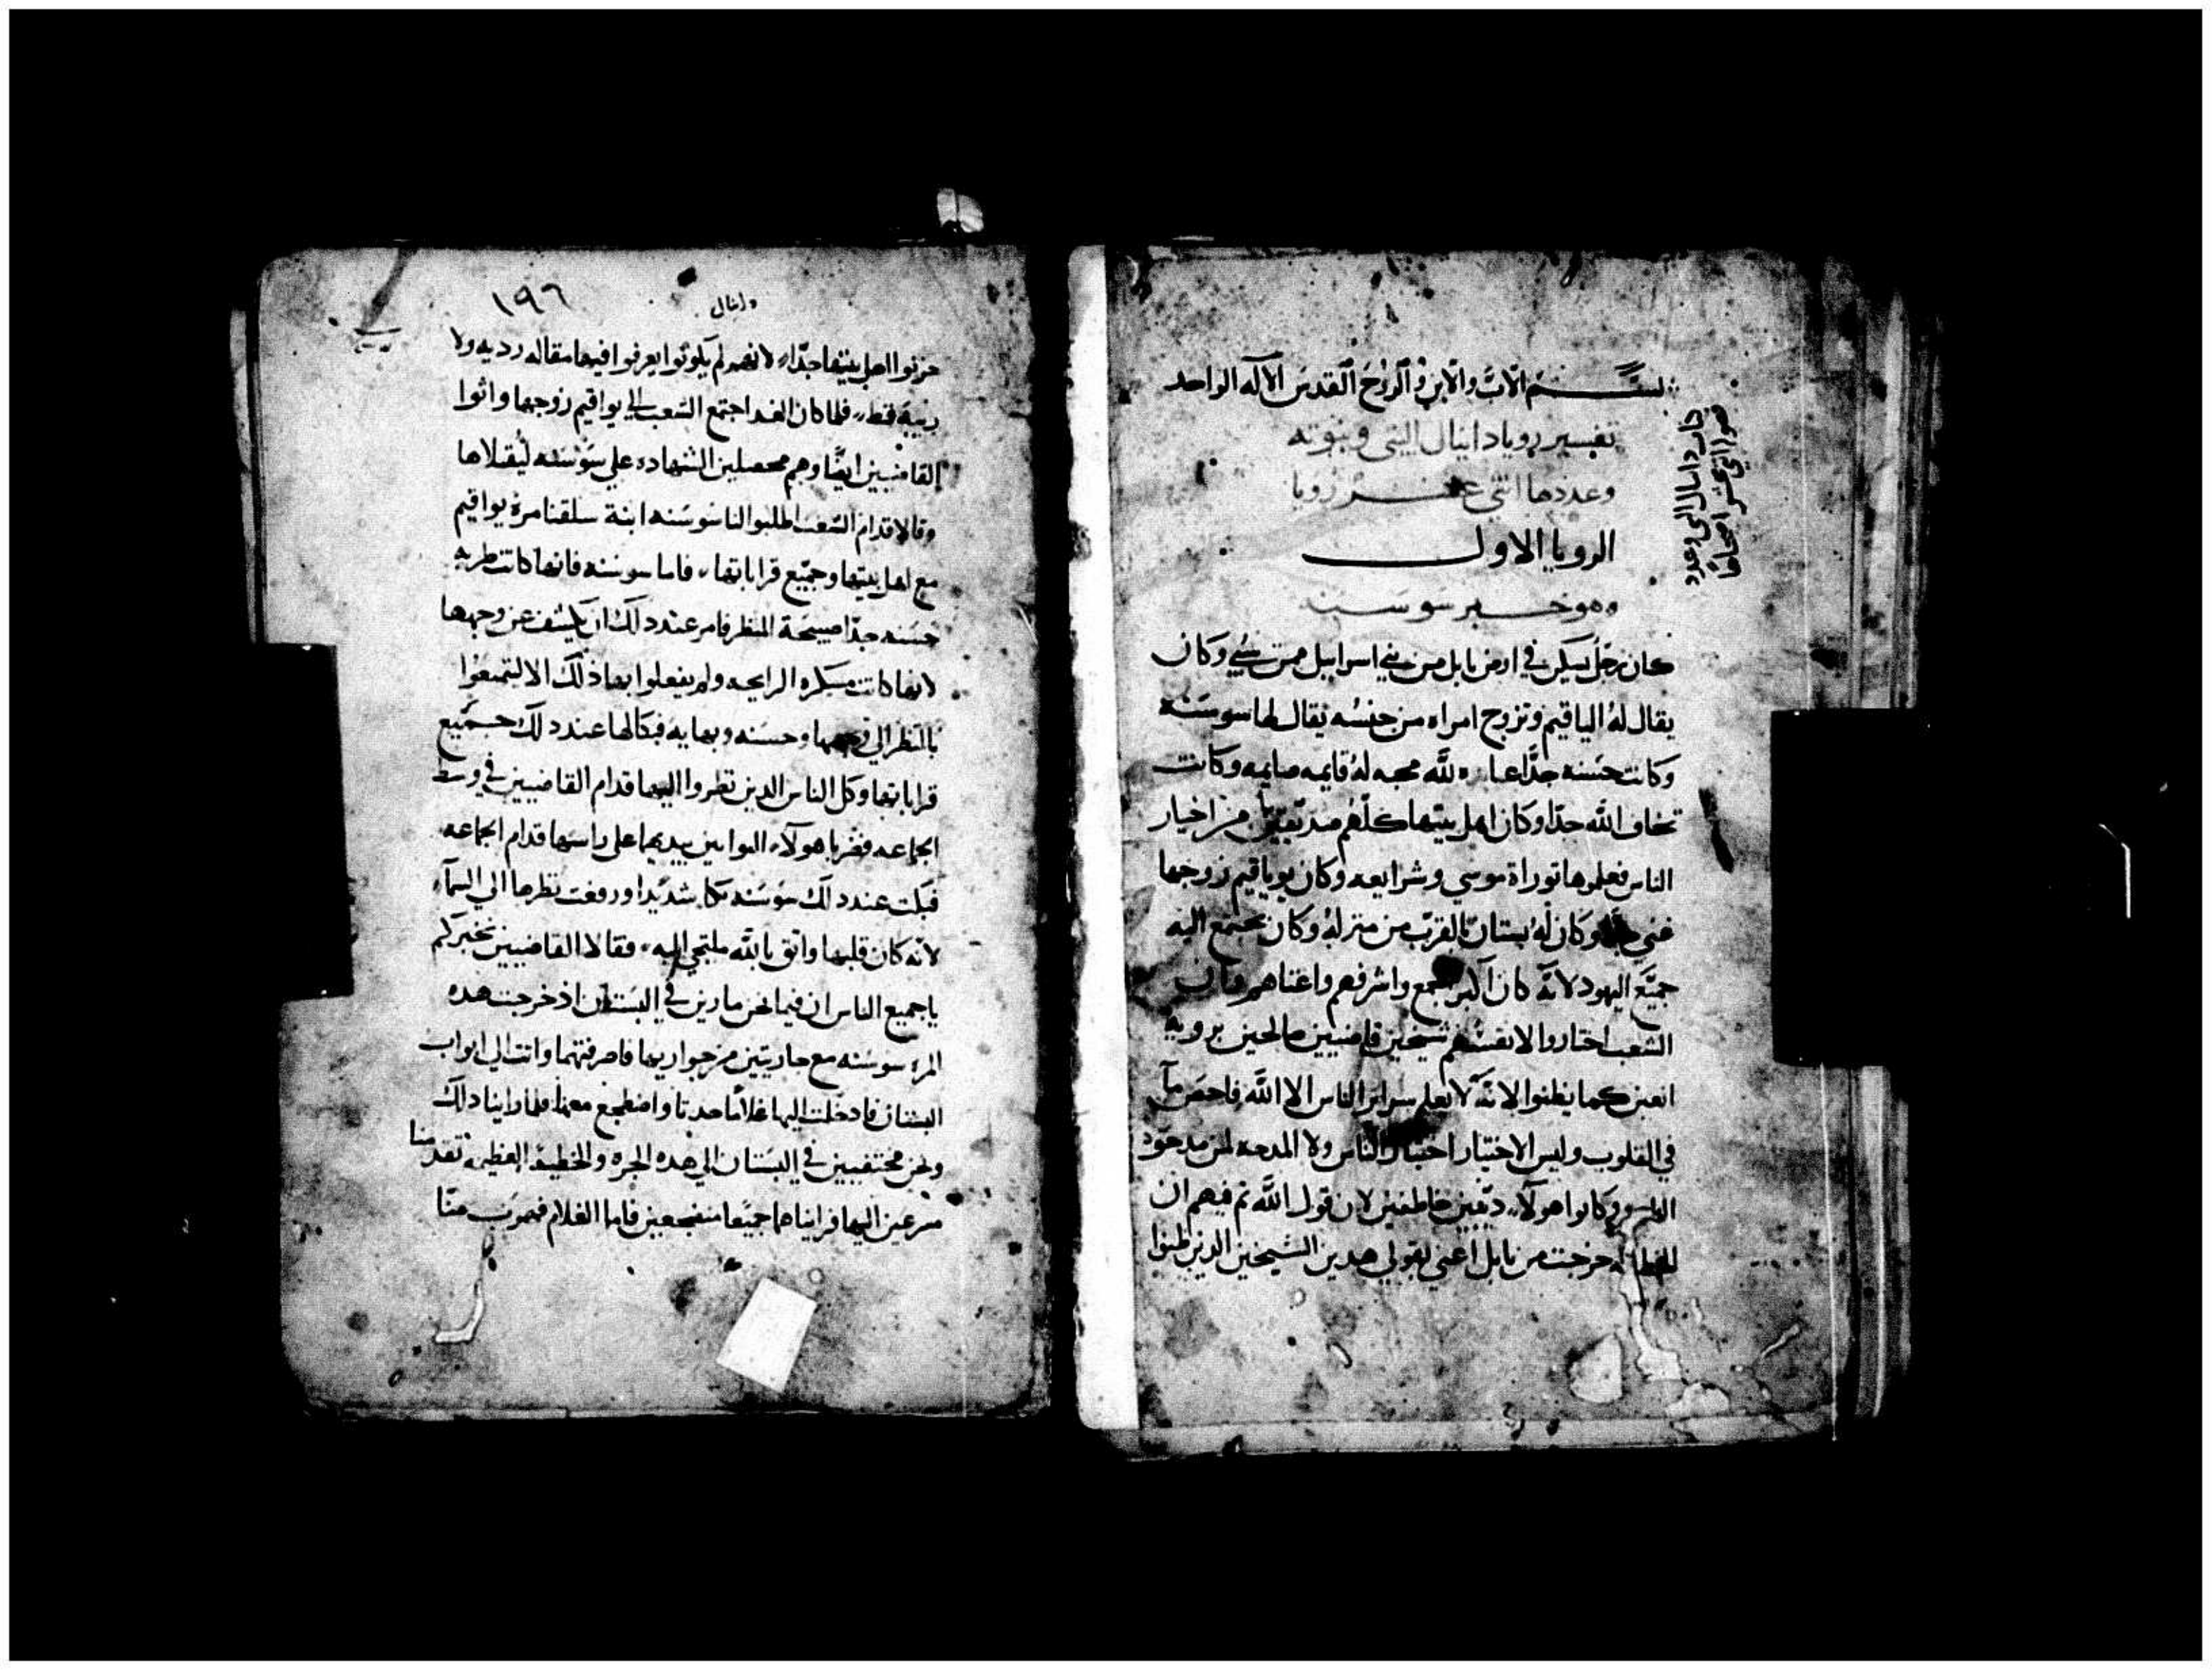 بسم الاب والابن والروح القدس الاله الواحد
تفسير رويا دانيال النبي وبنوته
وعددها اثني عشر رويا
الرويا الاول
وهو خبر سوسنه
كان رجل يسكن في ارض بابل من بني اسراييل من سبي وكان
يقال له الياقيم وتزوج امراه من جنسه يقال لها سوسنه
وكانت حسنه جدا عابده لله محبه له قايمه صايمه وكانت
تخاف الله جدا وكان اهل بيتها كلهم صديقين من اخيار
الناس فعلموها توراة موسي وشرايعه وكان يوياقيم زوجها
غني جدا وكان له بستان بالقرب من منزله وكان يجتمع اليه
جميع اليهود لانه كان اكبرهم واشرفهم واغناهم وكان
الشعب اختاروا لانفسهم شيخين قاضيين صالحين بروية
اعين كما يظنوا لانه لا يعلم سراير الناس الا الله فاحص ما
في القلوب وليس الاختيار اختيار الناس ولا المدحه لمن مدحوه
الناس وكانوا هولاء خاطفين لان قول الله تم فيهم ان
الخطيه خرجت من بابل اعني بقولي هدين الشيخين الدين ظنوا
كتاب دانيال النبي وعدد
هو اثني عشر اصحاحا
دانيال
١٩٦
حزنوا اهل بيتها جدا لانهم لم يكونوا يعرفوا فيها مقاله رديه ولا
ريبة قط فلما كان الغد اجتمع الشعب الي يواقيم زوجها واتوا
القاضيين ايضا وهم محصلين الشهاده علي سوسنه ليقتلاها
وقالا قدام الشعب اطلبوا لنا سوسنه ابنة سلقنا مرة يواقيم
مع اهل بيتها وجميع قراباتها فاما سوسنه فانها كانت طريه
حسنه جدا صبيحة المنظر فامر عند دلك ان يكشف عن وجهها
لانها كانت مستكره الرايحه ولم يفعلوا بها ذلك الا ليتمتعوا
بالنظر الي وجهها وحسنه وبهايه فبكا لها عند دلك جميع
قراباتها وكل الناس الدين نظروا اليها قدام القاضيين في وسط
الجماعه فضربا هولاء بيديهما علي راسها قدام الجماعه
فبكت عند دلك سوسنه بكا شديدا ورفعت نظرها الي السماء
لانه كان قلبها واثق بالله ملتجي اليه فقالا القاضيين نخبركم
يا جميع الناس ان فيما نحن مارين في البستان اذ خرجت هده
المرة سوسنه مع جاريتين من جواريها فاصرفتهما واتت الي ابواب
البستان فادخلت اليها غلاما حدثا واضطجع معها فلما راينا دلك
ونحن مختفيين في البستان الي هده الجره والخطية العظيمه تقدمنا
مسرعين اليها فرايناهما جميعا مضجعين فاما الغلام فهرب منا